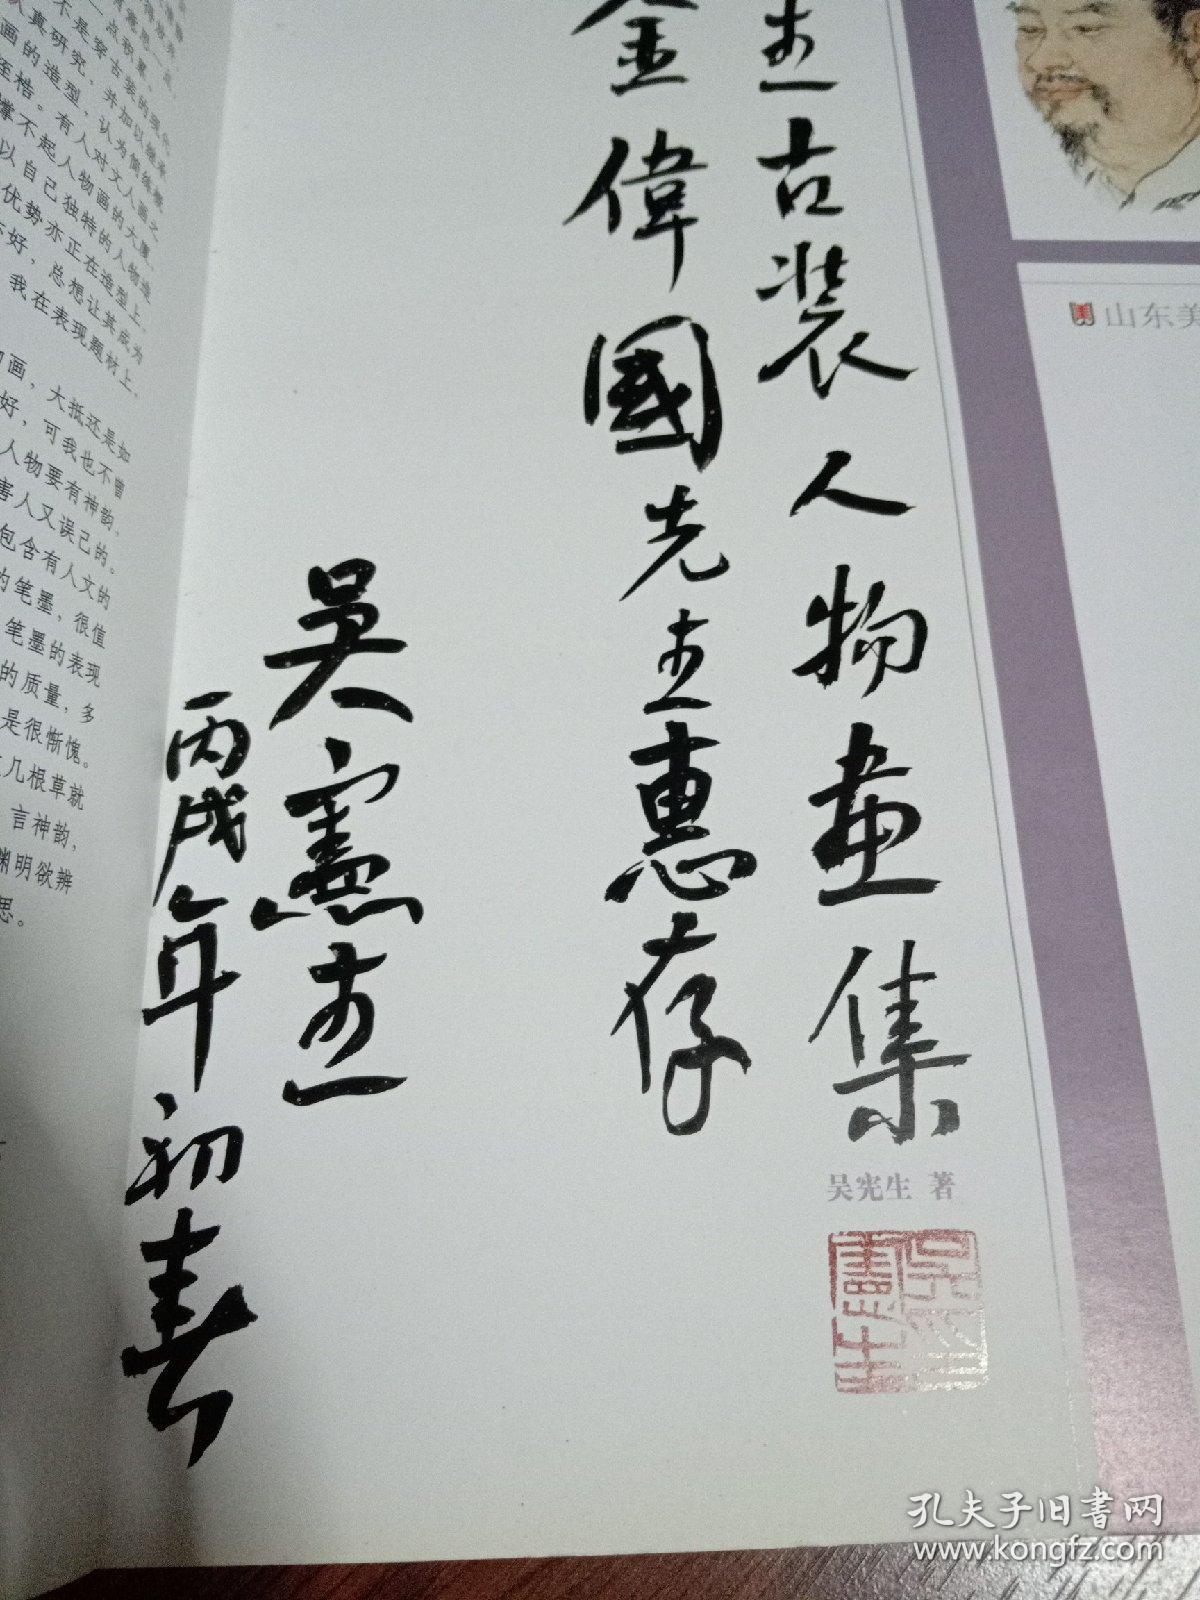 生古装人物畫集
金偉國先生惠存
吴憲生
丙戌年初春
吴宪生 著
吴憲生
山东美
不是穿古装的现代
认真研究，并加以继承
画的造型，认为
桎梏。有人对文人画之
撑不起人物画的大厦
以自己独特的人物造
优势亦正在造型上，
不好，总想让其成为
我在表现题材上，
画，大抵还是如
好，可我也不曾
人物要有神韵，
害人又误己的。
包含有人文的
的笔墨，很值
笔墨的表现
的质量，多
是很惭愧。
几根草就
言神韵，
渊明欲辨
思。
孔夫子旧书网
www.kongfz.com